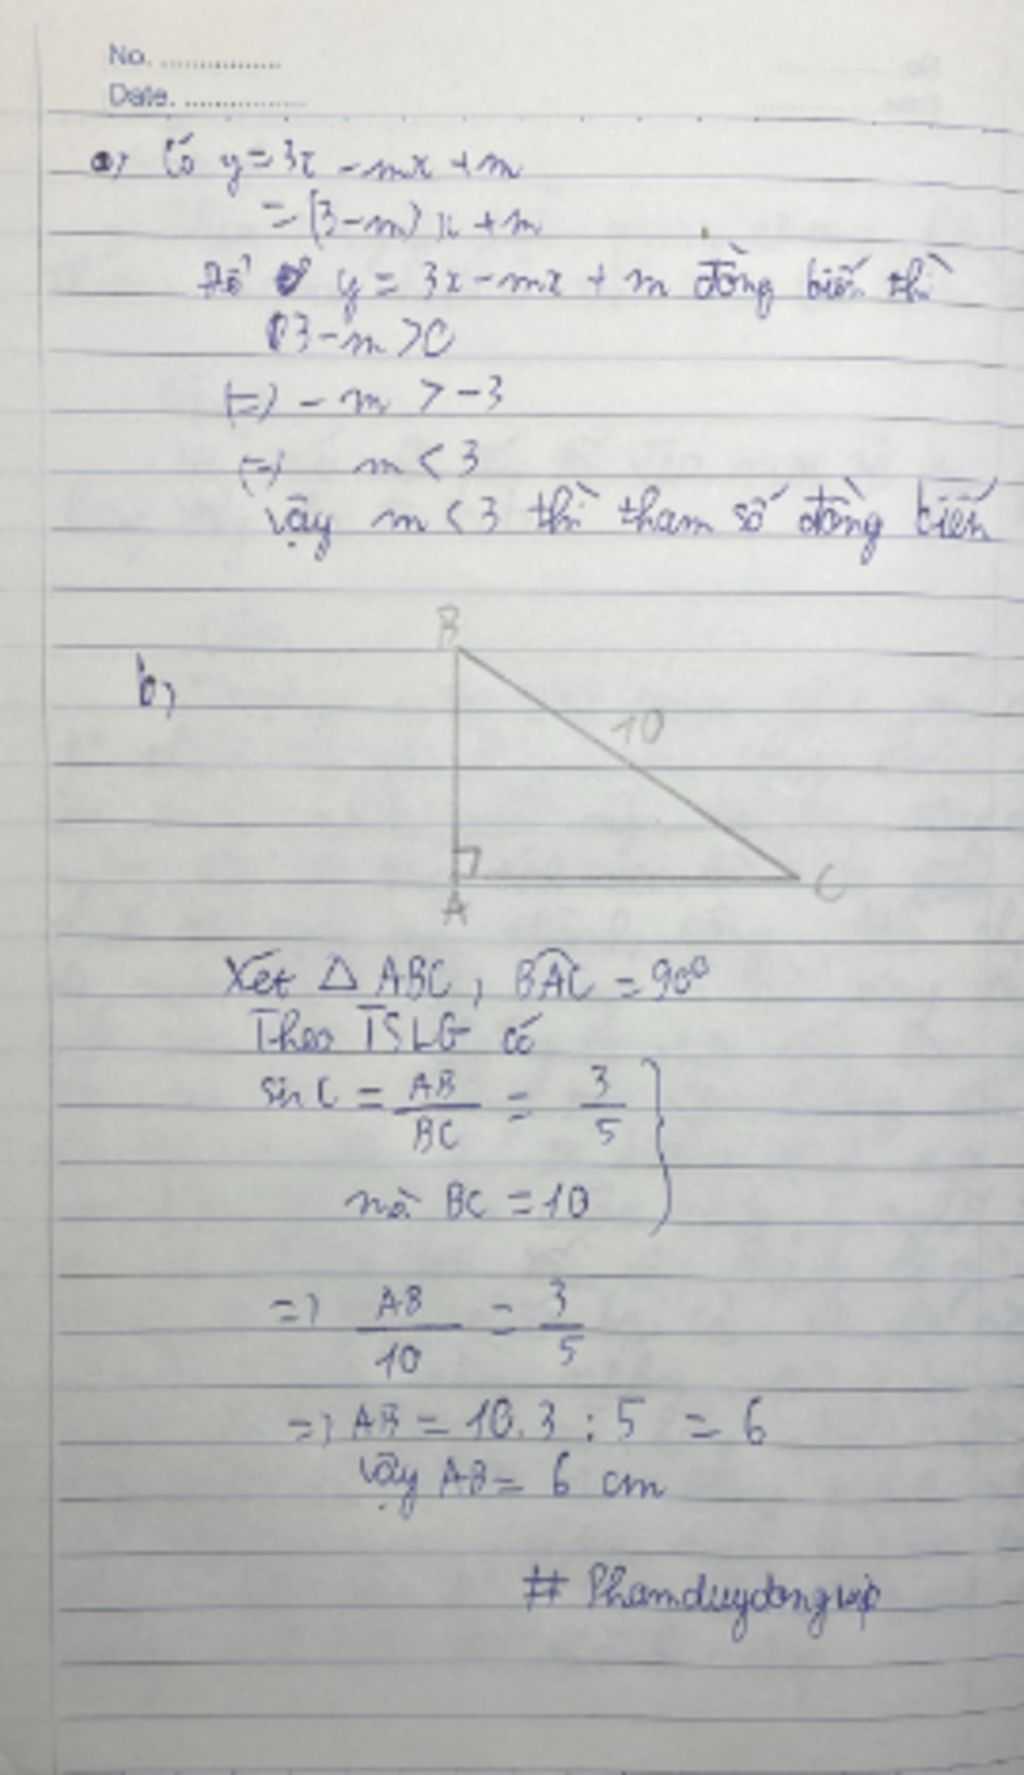 No. ..............
Date. ..............
a, Có y = 3x - mx + m
= (3-m) x + m
Để y = 3x - mx + m đồng biến thì
3 - m > 0
(=) - m > -3
(=) m < 3
Vậy m < 3 thì tham số đồng biến
B
b,
10
A
C
Xét △ ABC, BAC = 90°
Theo TSLG có
sin C = AB/BC = 3/5
mà BC = 10
=) AB/10 = 3/5
=) AB = 10.3 : 5 = 6
Vậy AB = 6 cm
# Phamduydongvip